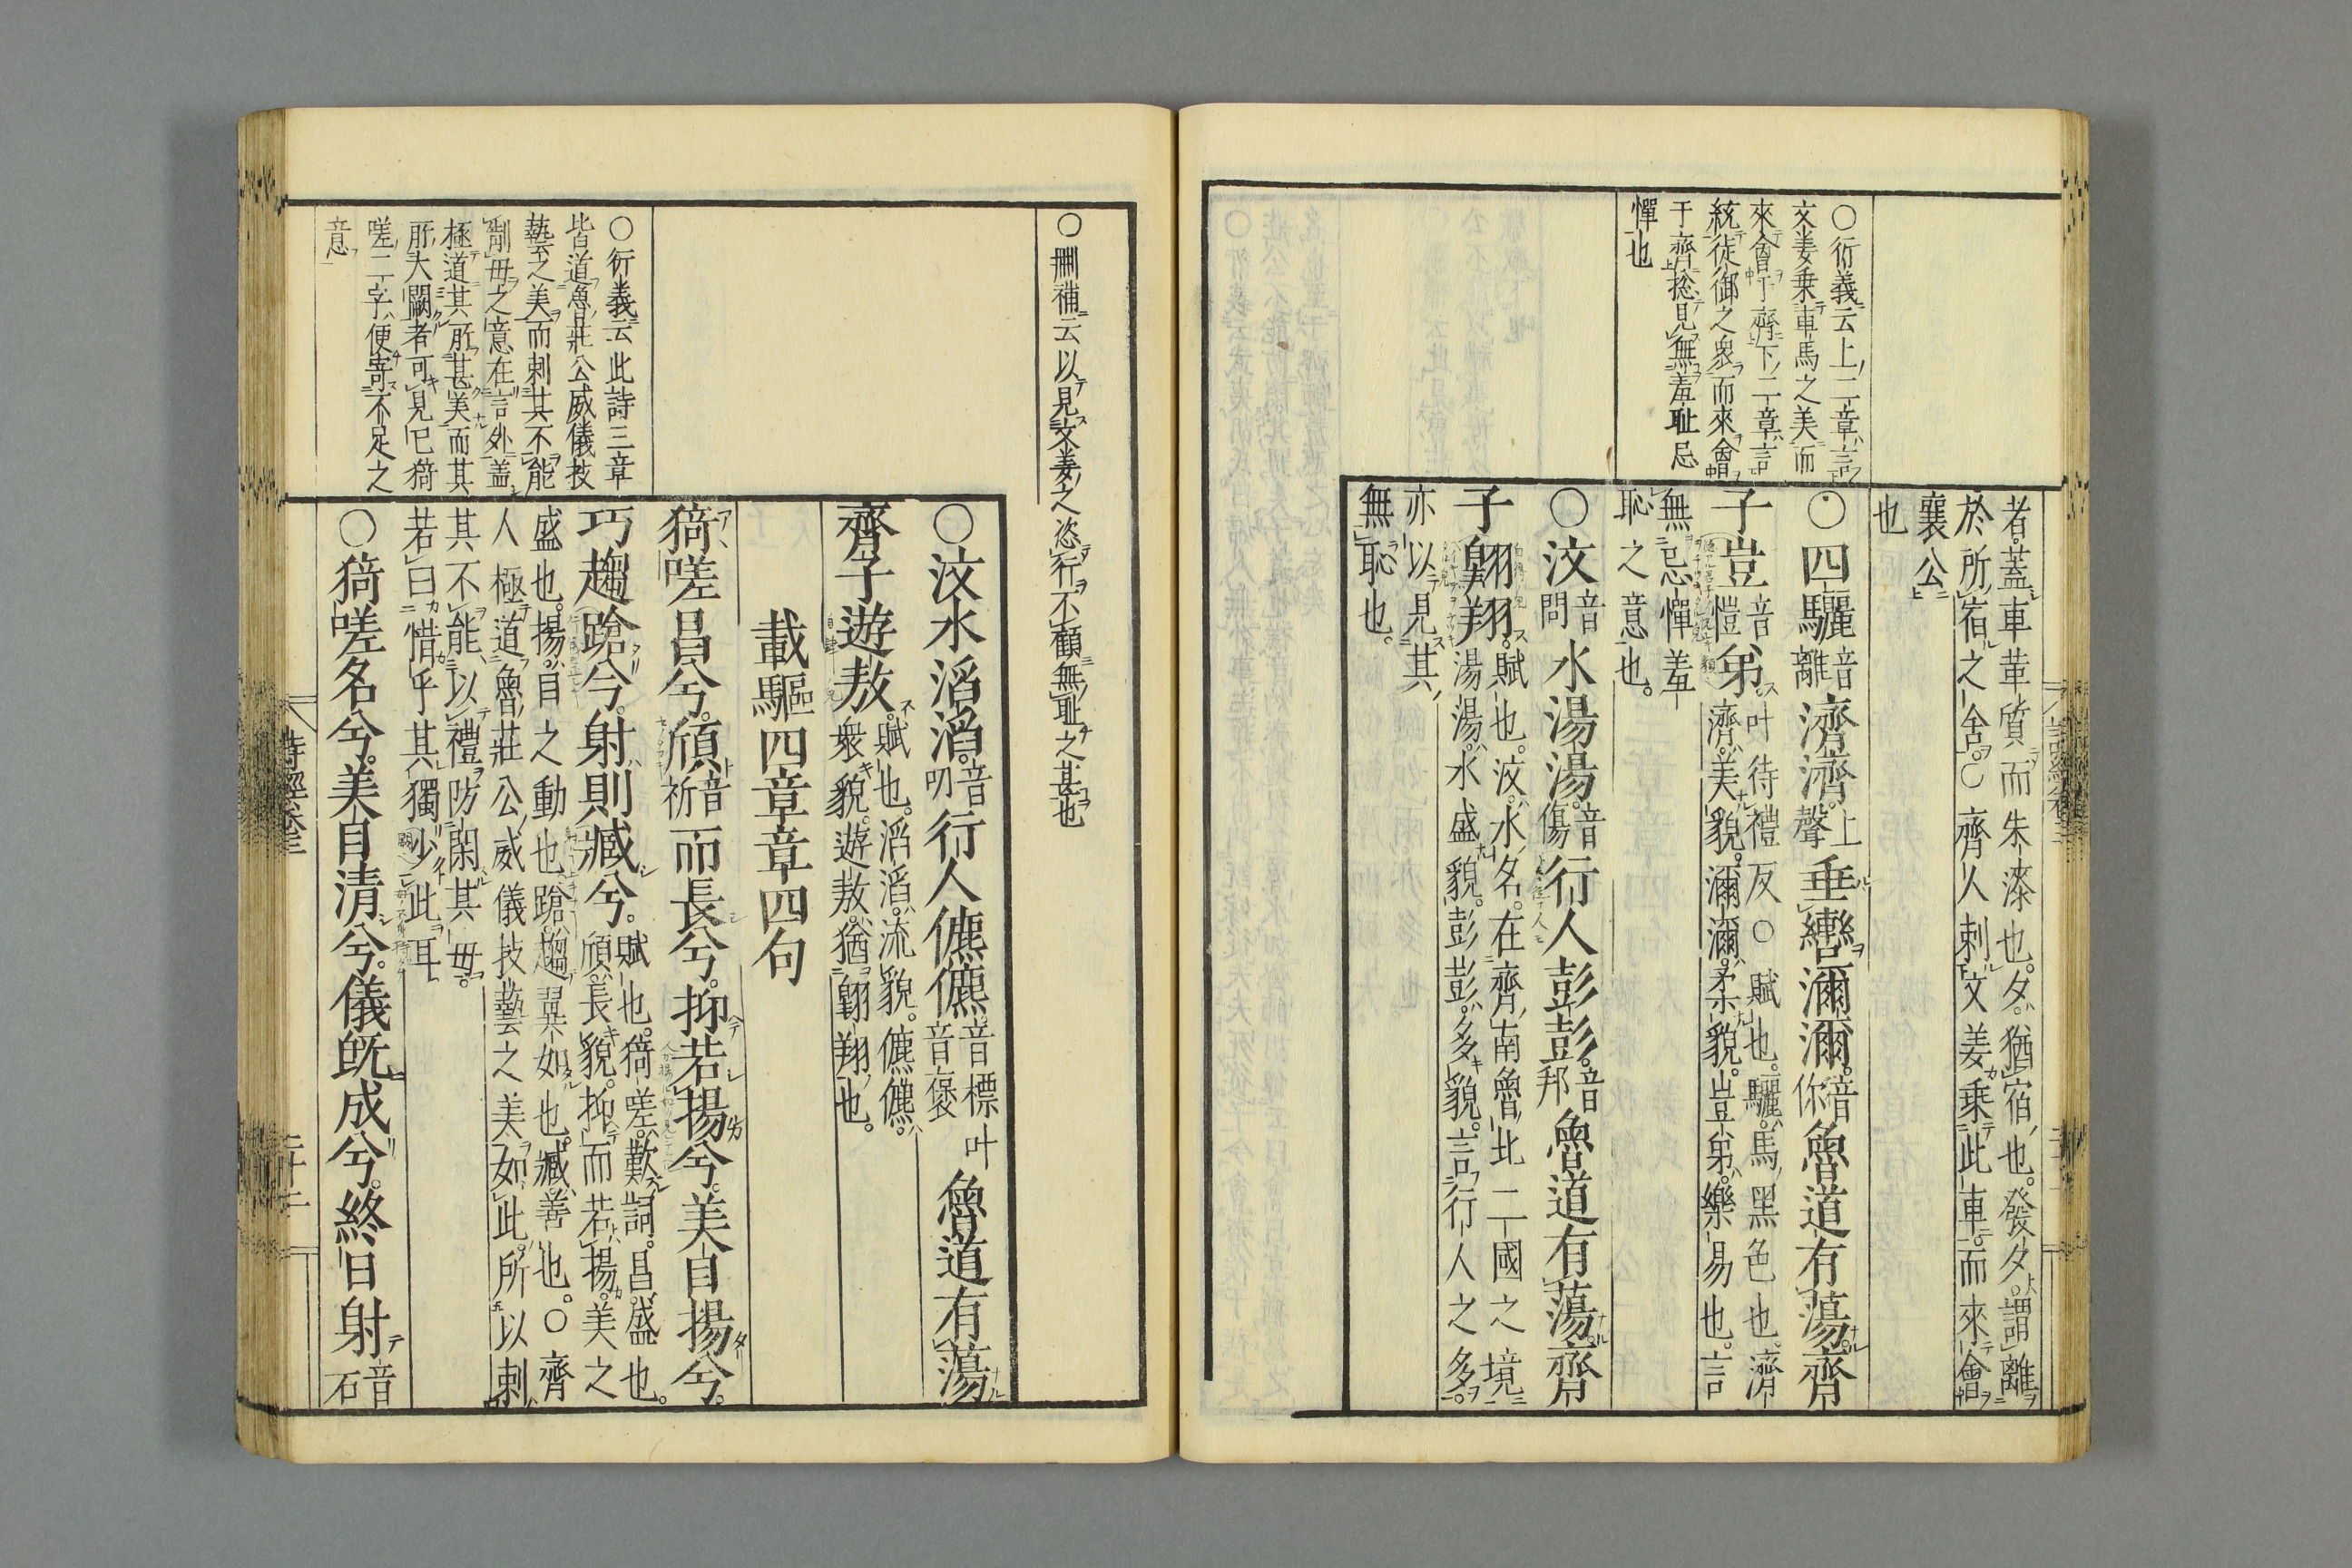 ○衍義云上二章言
文姜乗車馬之美而
來會于齊下二章言
統徒御之衆而來會
于齊捴見無羞耻忌
憚也
者蓋車革質而朱漆也夕猶宿也發夕謂離
於所宿之舍○齊人刺文姜乗此車而來會
襄公
也
○四驪音離濟濟上聲垂轡濔濔音你魯道有蕩齊
子豈音愷弟叶待禮反○賦也驪馬黒色也濟
濟美貌濔濔柔貌豈弟樂易也言
無忌憚羞
恥之意也
○汶音問水湯湯音傷行人彭彭音邦魯道有蕩齊
子翺翔賦也汶水名在齊南魯北二國之境
湯湯水盛貌彭彭多貌言行人之多
亦以見其
無恥也
○刪補云以見文姜之恣行不顧無耻之甚也
○衍義云此詩三章
皆道魯莊公威儀技
藝之美而刺其不能
制毋之意在言外盖
極道其所甚美而其
所大闕者可見已猗
嗟二字便寄不足之
意
○汶水滔滔音叨行人儦儦音標叶音褒魯道有蕩
齊子遊敖賦也滔滔流貌儦儦
衆貌遊敖猶翺翔也
載驅四章章四句
猗嗟昌兮頎音祈而長兮抑若揚兮美目揚兮
巧趨蹌兮射則臧兮賦也猗嗟歎詞昌盛也
頎長貌抑而若揚美之
盛也揚目之動也蹌趨翼如也臧善也○齊
人極道魯莊公威儀技藝之美如此所以刺
其不能以禮防閑其毋
若曰惜乎其獨少此耳
○猗嗟名兮美目清兮儀既成兮終日射音石
詩經卷三
二十二